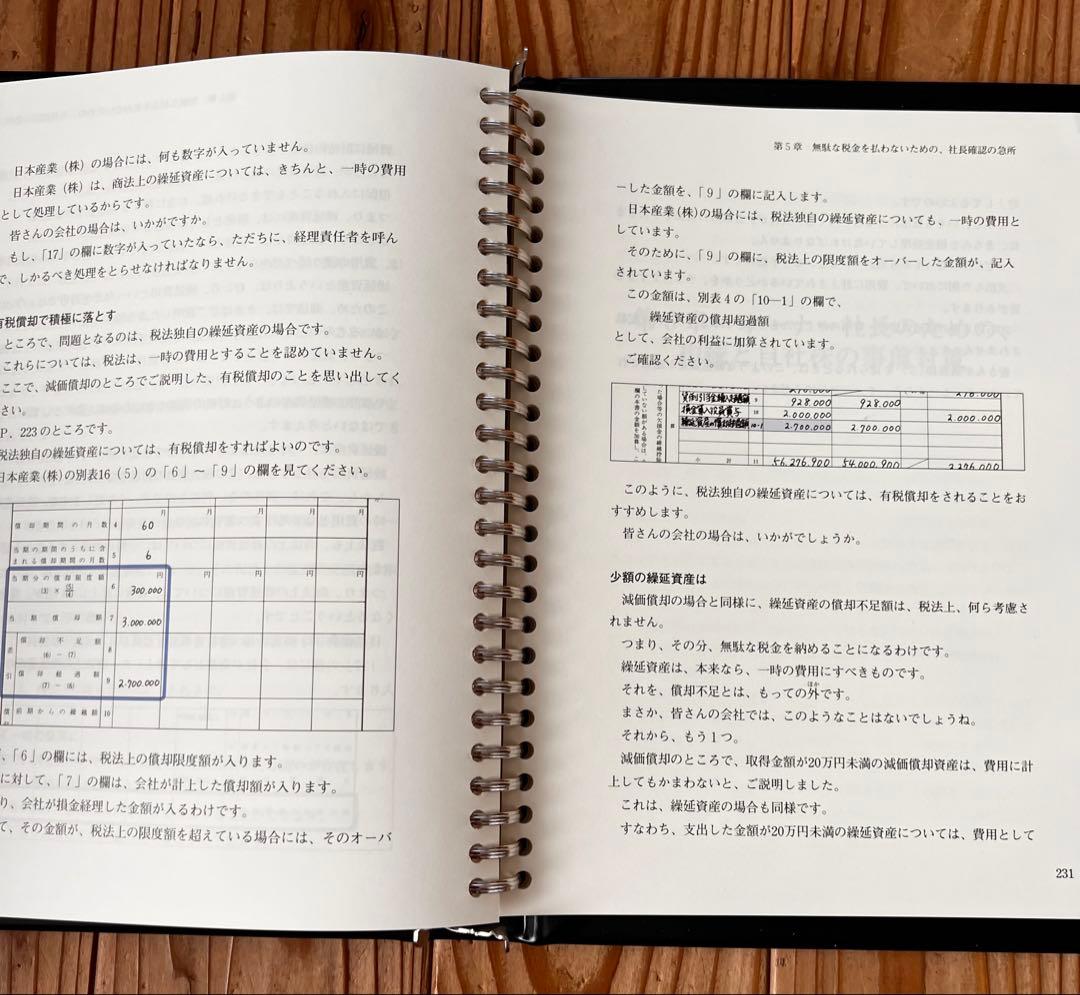 日本産業（株）の場合には、何も数字が入っていません。
日本産業（株）は、商法上の繰延資産については、きちんと、一時の費用
として処理しているからです。
皆さんの会社の場合は、いかがですか。
もし、「17」の欄に数字が入っていたなら、ただちに、経理責任者を呼ん
で、しかるべき処理をとらせなければなりません。
有税償却で積極に落とす
ところで、問題となるのは、税法独自の繰延資産の場合です。
これらについては、税法は、一時の費用とすることを認めていません。
ここで、減価償却のところでご説明した、有税償却のことを思い出してく
さい。
P．223のところです。
税法独自の繰延資産については、有税償却をすればよいのです。
日本産業(株)の別表16（5）の「6」～「9」の欄を見てください。
償却期間の月数 4 月 60 月 月 月 月
当期の期間のうちに含
まれる償却期間の月数 5 6
当期分の償却限度額 6 円 300,000 円 円 円 円
(3) × (5)/(4)
当期償却額 7 3,000,000
差 償却不足額 8
(6) － (7)
引 償却超過額 9 2,700,000
(7) － (6)
償 前期からの繰越額 10
、「6」の欄には、税法上の償却限度額が入ります。
に対して、「7」の欄は、会社が計上した償却額が入ります。
り、会社が損金経理した金額が入るわけです。
て、その金額が、税法上の限度額を超えている場合には、そのオーバ
第5章 無駄な税金を払わないための、社長確認の急所
ーした金額を、「9」の欄に記入します。
日本産業(株)の場合には、税法独自の繰延資産についても、一時の費用と
しています。
そのために、「9」の欄に、税法上の限度額をオーバーした金額が、記入
されています。
この金額は、別表4の「10―1」の欄で、
繰延資産の償却超過額
として、会社の利益に加算されています。
ご確認ください。
貸倒引当金繰入超過額 9 928,000 928,000
損金算入役員賞与 10 2,000,000 2,000,000
繰延資産の償却超過額 10-1 2,700,000 2,700,000
小計 11 56,296,900 54,000,900 2,296,000
このように、税法独自の繰延資産については、有税償却をされることをお
すすめします。
皆さんの会社の場合は、いかがでしょうか。
少額の繰延資産は
減価償却の場合と同様に、繰延資産の償却不足額は、税法上、何ら考慮さ
れません。
つまり、その分、無駄な税金を納めることになるわけです。
繰延資産は、本来なら、一時の費用にすべきものです。
それを、償却不足とは、もっての外です。
まさか、皆さんの会社では、このようなことはないでしょうね。
それから、もう1つ。
減価償却のところで、取得金額が20万円未満の減価償却資産は、費用に計
上してもかまわないと、ご説明しました。
これは、繰延資産の場合も同様です。
すなわち、支出した金額が20万円未満の繰延資産については、費用として
231